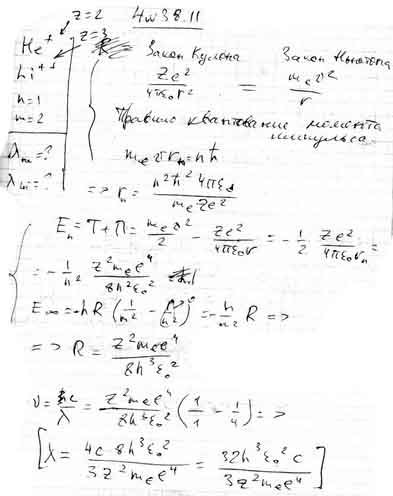 4w38.11
He⁺ z=2
Li⁺⁺ z=3
n=1
m=2
λ_He=?
λ_Li=?
Закон Кулона Закон Ньютона
Ze²/4πε₀r² = m_e v²/r
Правило квантование момента
импульса
m_e v r_n = nħ
=> r_n = n²ħ² 4πε₀/m_e Ze²
E_n = T+П = m_e v²/2 − Ze²/4πε₀r = −1/2 Ze²/4πε₀r_n =
= −1/n² z² m_e e⁴/8h²ε₀²
E_∞ = −hR (1/n² − 1/n²)⁰ = −h/n² R =>
=> R = z² m_e e⁴/8h³ε₀²
υ = c/λ = z² m_e e⁴/8h³ε₀² (1/1 − 1/4) =>
[λ = 4c·8h³ε₀²/3z² m_e e⁴ = 32h³ε₀²c/3z² m_e e⁴]